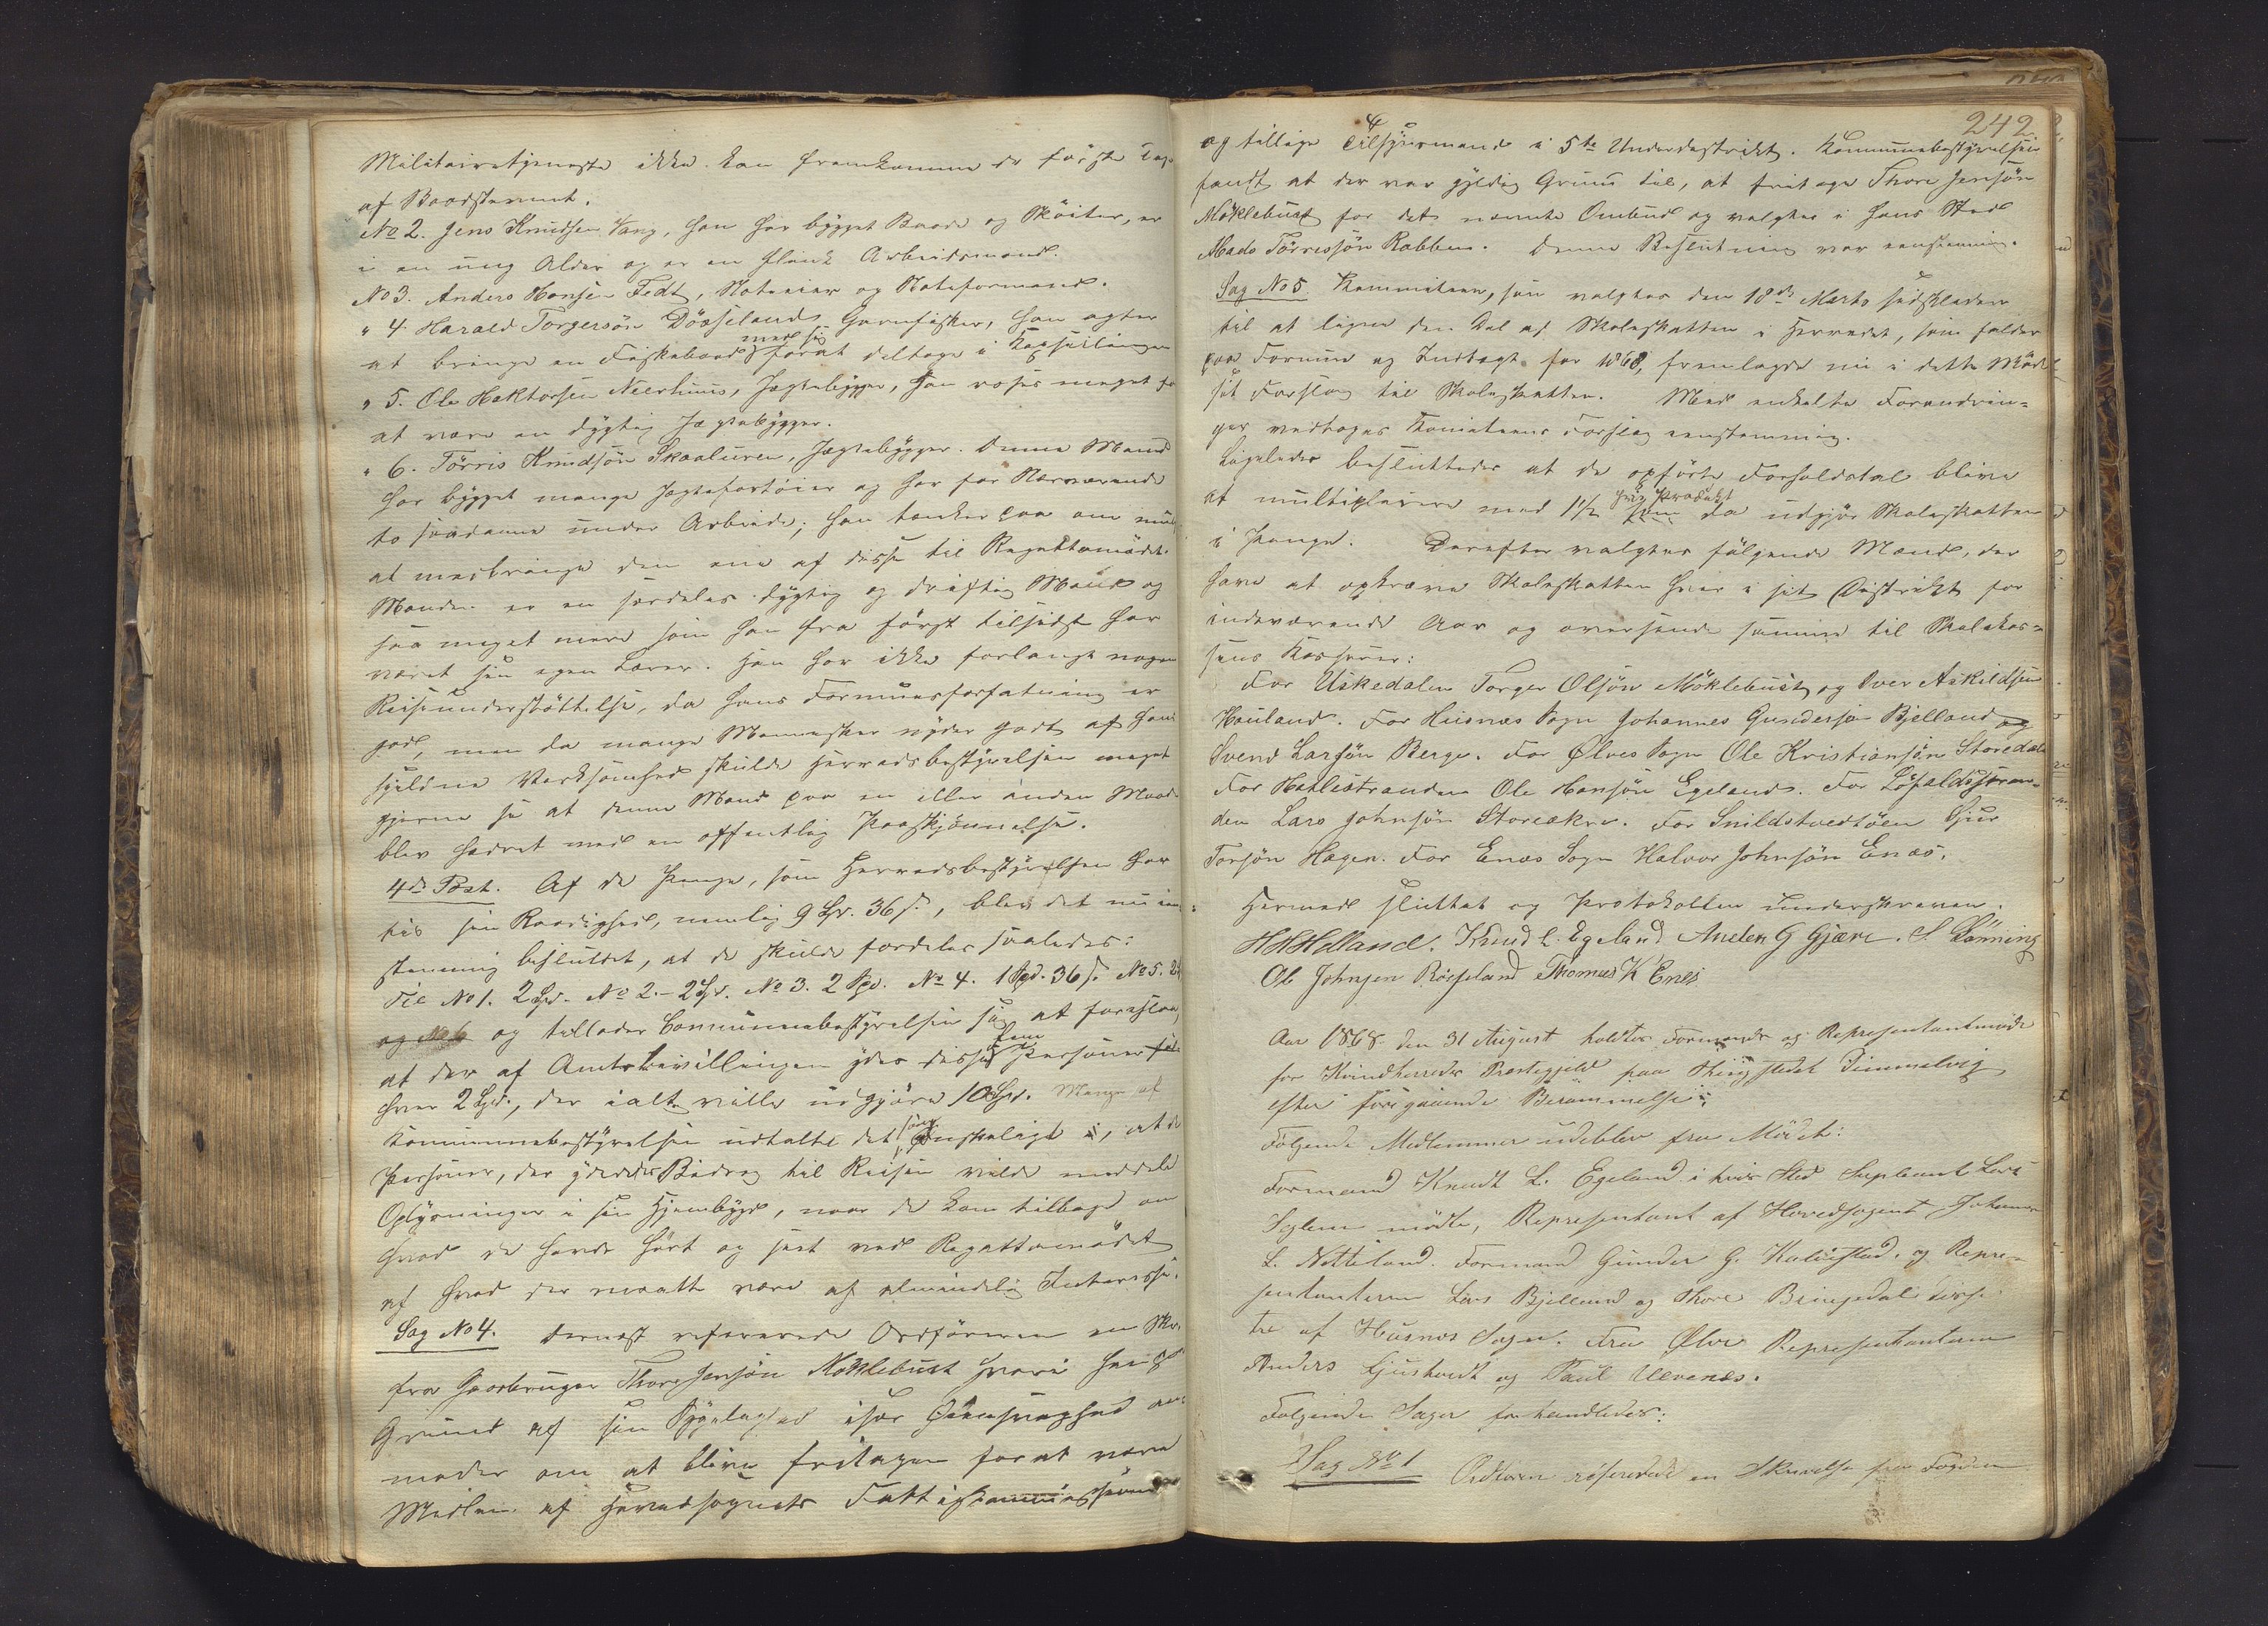 Militairetjeneste ikke kan fremkomme de første Dage
af Baadstevnet.
No 2. Jens Knudsen Vang, han har bygget Baade og Skøiter, er
i en ung Alder og er en flink Arbeidsmand.
No 3. Anders Hansen Fedt, Noteier og Noteformand.
" 4. Harald Torgersøn Døsseland, Garnfisker, han agter
at bringe en Fiskebaad med sig forat deltage i Kapseilingen
" 5. Ole Haktorsen Neerhuus, Jægtebygger, han roses meget for
at være en dygtig Jægtebygger.
" 6. Tørris Knudsøn Skaaluren, Jægtebygger. Denne Mand
har bygget mange Jægtefartøier og har for Nærværende
to saadanne under Arbeide; han tænker paa om mulig
at medbringe den ene af disse til Regattamødet.
Manden er en særdeles dygtig og driftig Mand og
saa meget mere som han fra først til sidst har
været sin egen Lærer. Han har ikke forlangt nogen
Reiseunderstøttelse, da hans Formuesforfatning er
god, men da mange Mennesker nyder godt af hans
sjeldne Verksomhed skulde Herredsbestyrelsen meget
gjerne se at denne Mand paa en eller anden Maade
blev hædret med en offentlig Paaskjønnelse.
4de Post. Af de Penge, som Herredsbestyrelsen har
til sin Raadighed, nemlig 9 Spd. 36 s., blev det nu een
stemmig besluttet, at de skulde fordeles saaledes:
Til No 1. 2 Spd. No 2. - 2 Spd. No 3. 2 Spd. No 4. 1 Spd. 36 s. No 5. 2
og No 6 og tillader Communebestyrelsen sig at foreslaa
at der af Amtsbevillingen ydes disse fem Personer
hver 2 Spd., der ialt ville udgjøre 10 Spd. Mange af
Kommunebestyrelsen udtalte det som ønskeligt, at de
Personer, der ydedes Bidrag til Reisen vilde meddele
Oplysninger i sin Hjembygd, naar de kom tilbage om
hvad de havde hørt og seet ved Regattamødet
af hvad der maatte være af almindelig Interesse.
Sag No 4. Dernæst refererede Ordføreren en Skr.
fra Gaardbruger Thore Jensøn Møklebust hvori han paa
Grund af sin Sygelighed især Øiensvaghed an-
moder om at blive fritagen for at være
Medlem af Hovedsognets Fattigkommission
242
og tillige Tilsynsmand i 5te Underdistrikt. Kommunebestyrelsen
fandt at der var gyldig Grund til, at fritage Thore Jensøn
Møklebust for det nævnte Ombud og valgtes i hans Sted
Mads Tørresøn Rabben. Denne Beslutning var eenstemmig.
Sag No 5 Kommiteen, som valgtes den 18de Marts sidstleden
til at ligne den Del af Skoleskatten i Herredet, som falder
paa Formue og Indtægt for 1868, fremlagde nu i dette Møde
sit Forslag til Skoleskatten. Med enkelte Forandrin-
ger vedtoges Komiteens Forslag eenstemmig.
Ligeledes besluttedes at de opførte Forholdstal blive
at multiplicere med 1 1/2 hvis Produkt da udgjør Skoleskatten
i Penge. Derefter valgtes følgende Mænd, der
have at opkræve Skoleskatten hver i sit Distrikt for
indeværende Aar og oversende samme til Skolekas-
sens Kasserer:
For Uskedalen Torger Olsøn Møklebust og Iver Askildsen
Hauland. For Husnæs Sogn Johannes Gundersøn Bjelland og
Svend Larsøn Berge. For Ølves Sogn Ole Kristiansøn Storedal
For Hatlestranden Ole Hansøn Egeland. For Løfaldstran-
den Lars Johnsøn Storeakre. For Snildstvedtøen Sjur
Torsøn Hagen. For Enæs Sogn Halvor Johnsøn Enæs.
Hermed sluttet og Protokollen underskreven.
H H Holland. Knud L. Egeland Anders G Gjære. S. Lønning
Ole Johnsen Røsseland Thomas K Enes
Aar 1868 den 31 August holdtes Formands og Representantmøde
for Kvindherreds Præstegjeld paa Thingstedet Dimmelvig
efter foregaaende Berammelse.
Følgende Medlemmer udeblev fra Mødet:
Formand Knudt L. Egeland i hvis Sted Supleant Lars
Seglem mødte, Representant af Hovedsognet Johannes
L. Nætteland. Formand Gunder G. Kaldestad. og Repre-
sentanterne Lars Bjelland og Thore Bringedal disse
tre af Husnæs Sogn. Fra Ølve Representanterne
Anders Ljusthvedt og Paul Ulvenæs.
Følgende Sager forhandledes:
Sag No 1 Ordføreren refererede en Skrivelse fra Fogden